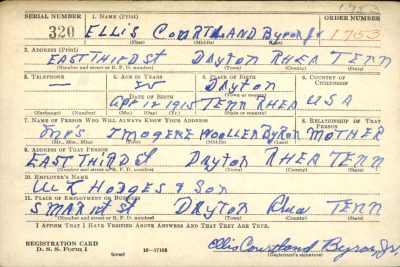 1753
SERIAL NUMBER 1. NAME (Print) ORDER NUMBER
320 ELLIS COURTLAND Byron Jr 1753
(First) (Middle) (Last)
2. ADDRESS (Print)
EAST THIRD St DAYTON RHEA TENN
(Number and street or R. F. D. number) (Town) (County) (State)
3. TELEPHONE 4. AGE IN YEARS 5. PLACE OF BIRTH 6. COUNTRY OF CITIZENSHIP
— 25 DAYTON
DATE OF BIRTH (Town or county)
Apr 12 1915 TENN RHEA USA
(Mo.) (Day) (Yr.) (State or country)
7. NAME OF PERSON WHO WILL ALWAYS KNOW YOUR ADDRESS 8. RELATIONSHIP OF THAT PERSON
Mrs IMOGENE WOOLLEN Byron MOTHER
(Mr., Mrs., Miss) (First) (Middle) (Last)
9. ADDRESS OF THAT PERSON
EAST THIRD St DAYTON RHEA TENN
(Number and street or R. F. D. number) (Town) (County) (State)
10. EMPLOYER'S NAME
HODGES & SON
11. PLACE OF EMPLOYMENT OR BUSINESS
S MAIN St DAYTON Rhea TENN
(Number and street or R. F. D. number) (Town) (County) (State)
I AFFIRM THAT I HAVE VERIFIED ABOVE ANSWERS AND THAT THEY ARE TRUE.
REGISTRATION CARD
D. S. S. Form 1 (over) 16—17105 Ellis Courtland Byron, Jr.
(Registrant's signature)